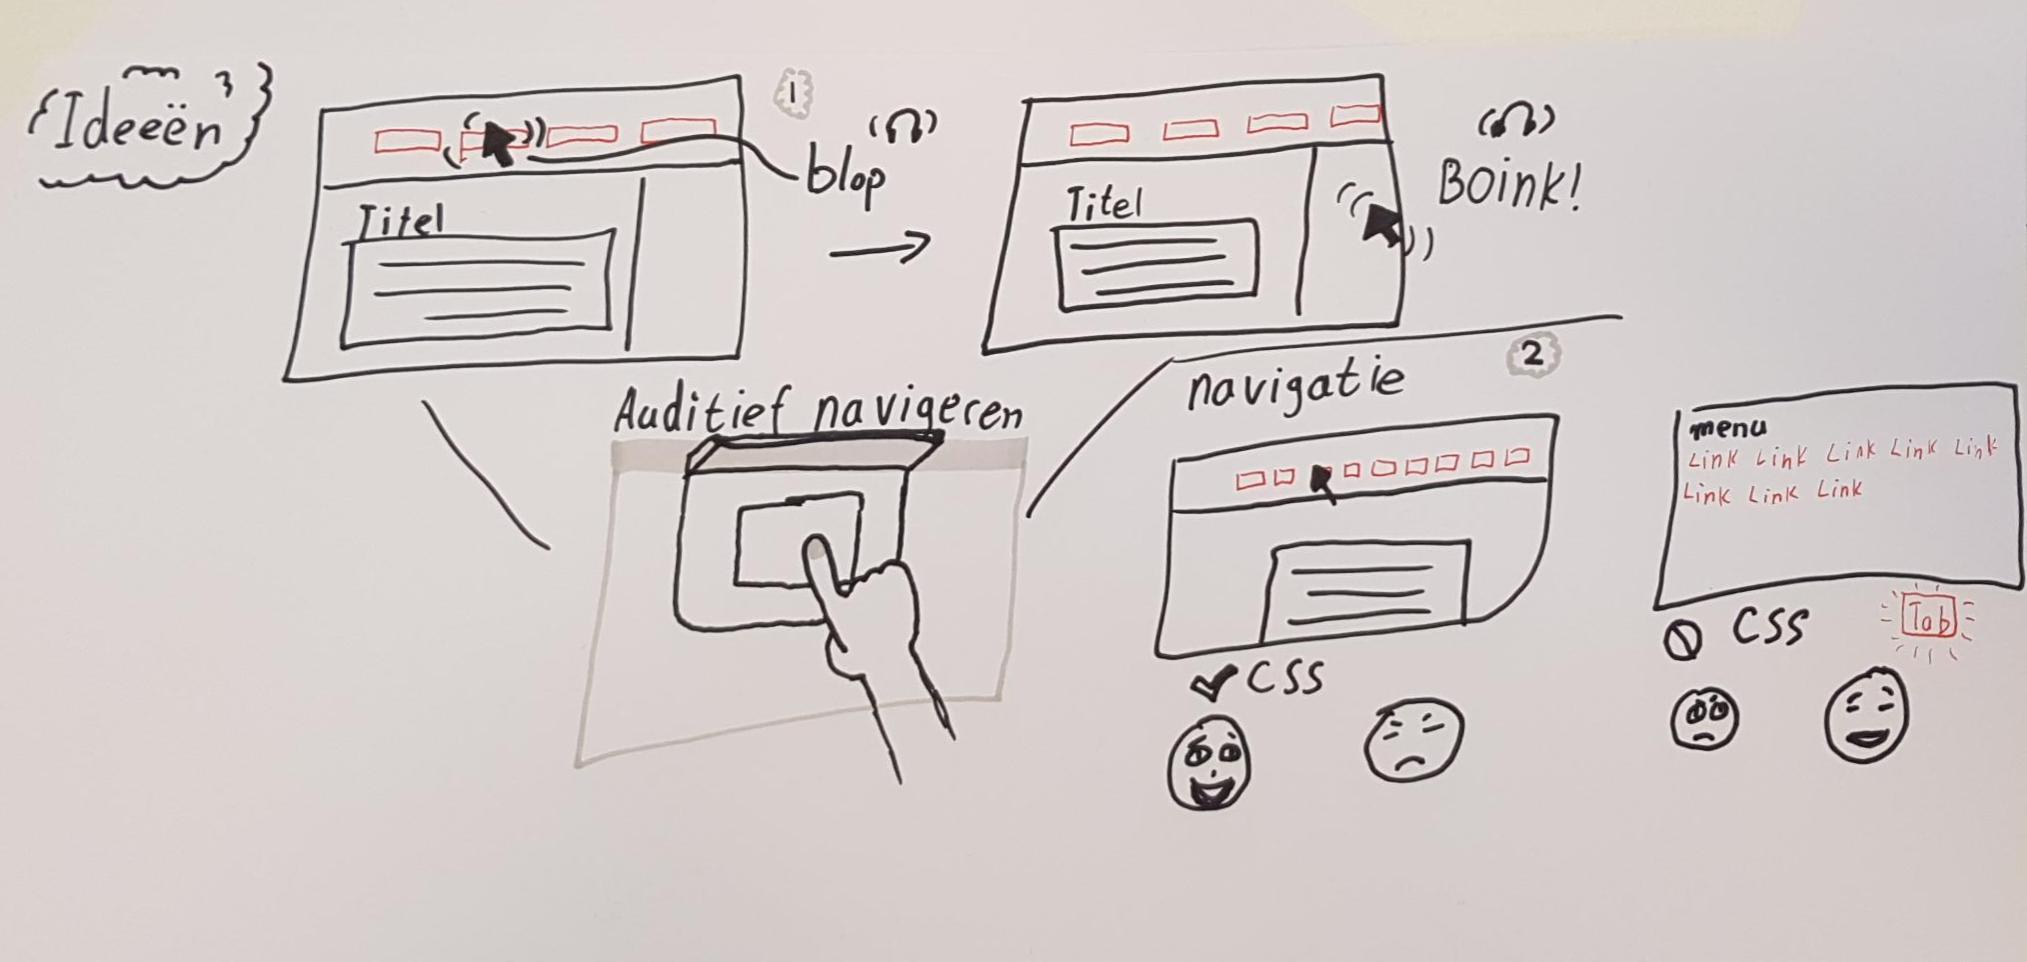 Ideeën
1
blop
Titel
Titel
Boink!
Auditief navigeren
2
navigatie
menu
Link Link Link Link Link
Link Link Link
✓ CSS
CSS
Tab